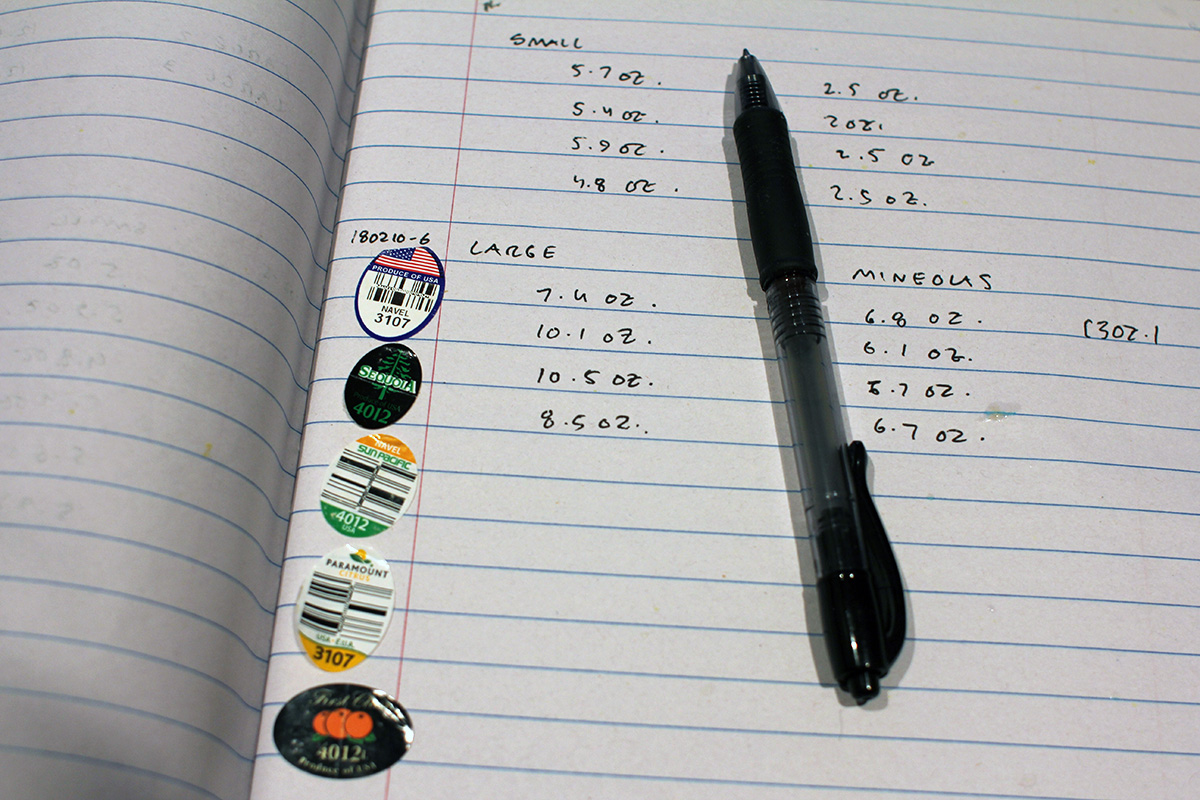 SMALL
5.7 oz.
5.4 oz.
5.9 oz.
4.8 oz.
2.5 oz.
2 oz.
2.5 oz
2.5 oz.
180210-6
LARGE
7.4 oz.
10.1 oz.
10.5 oz.
8.5 oz.
MINEOLAS
6.8 oz.
6.1 oz.
6.7 oz.
PRODUCE OF USA
NAVEL
3107
SEQUOIA
4012
NAVEL
SUN PACIFIC
4012
USA
PARAMOUNT
CITRUS
USA - E.U.A.
3107
4012
Produce of USA